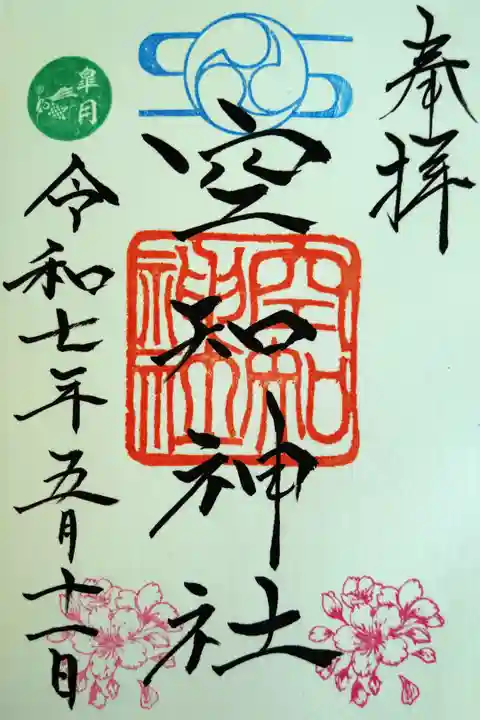 奉拝
空知神社
空知
神社
令和七年五月十一日
皐月